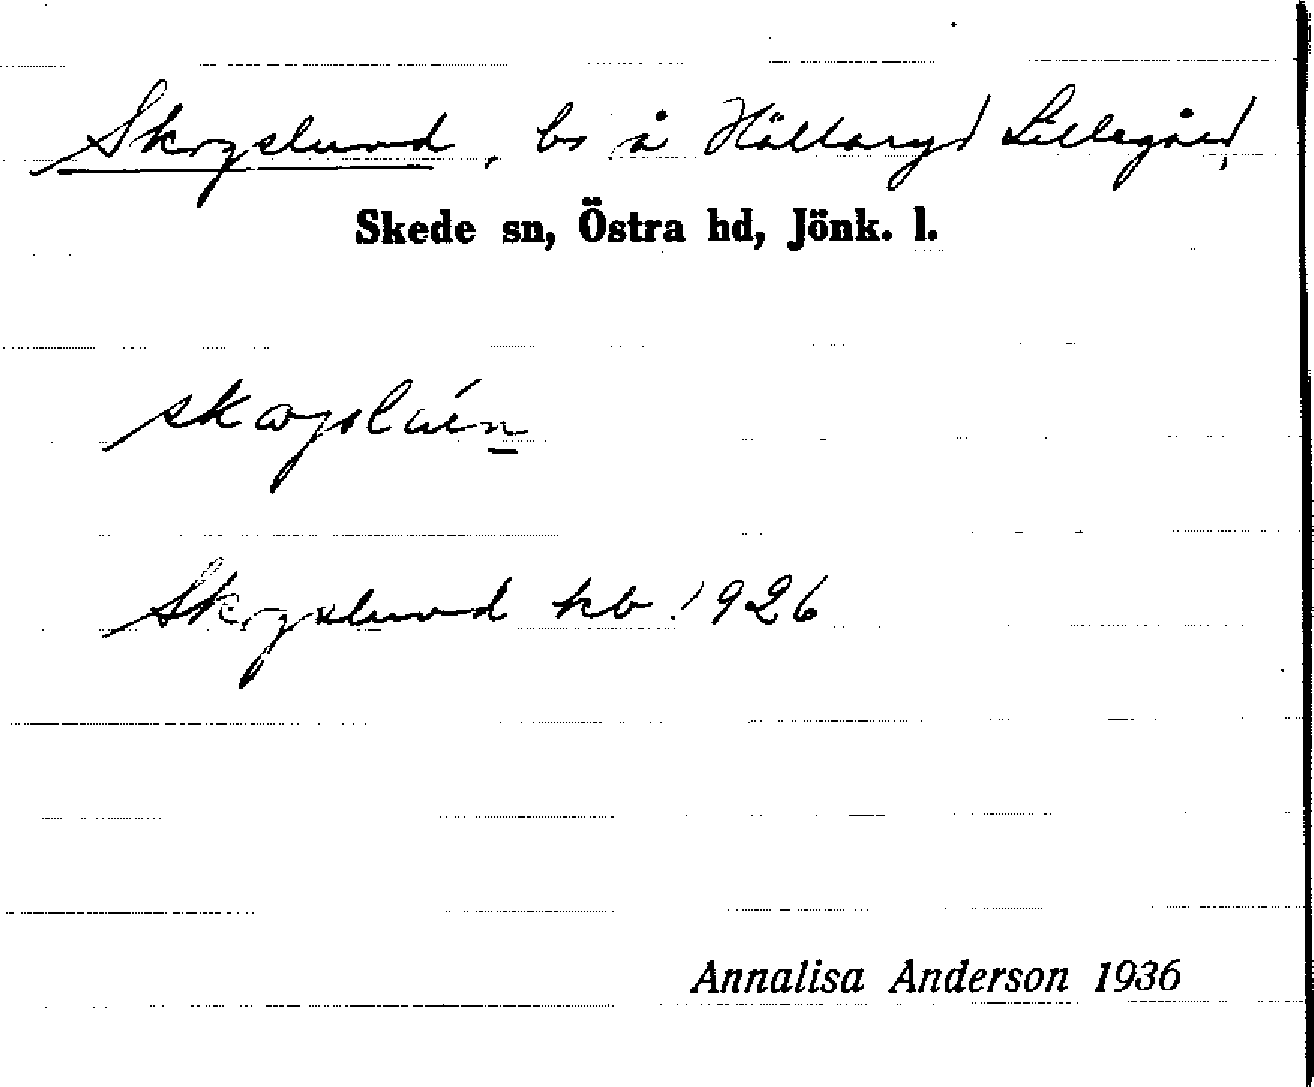 Skogslund, bs å Hällaryd Lillegård,
Skede sn, Östra hd, Jönk. l.
Skogslund kb. 1926
Annalisa Anderson 1936